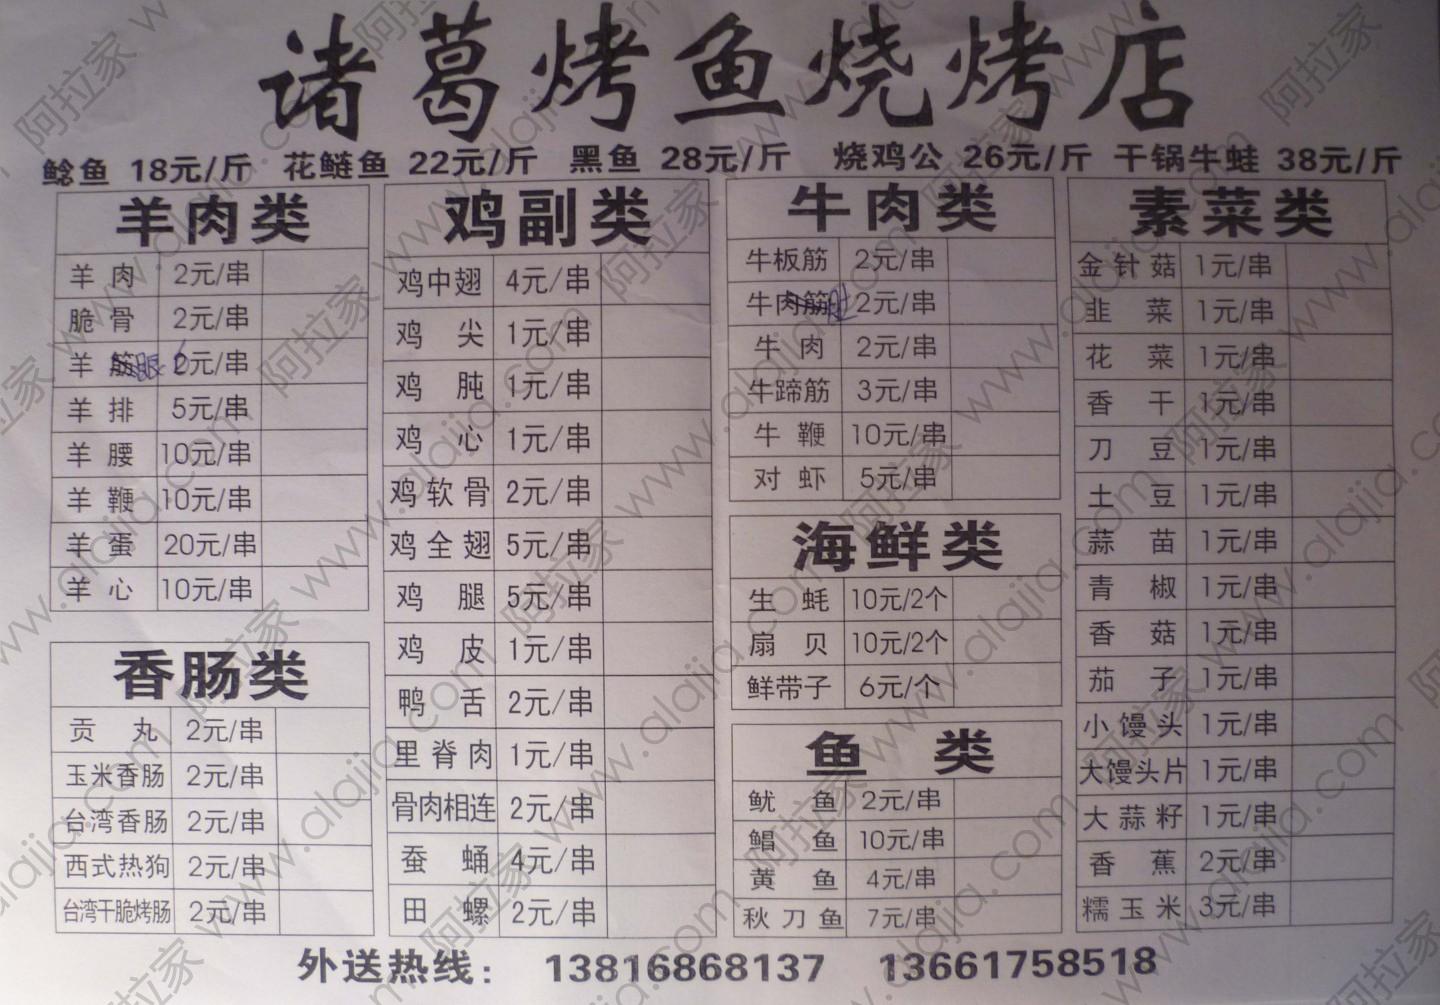 诸葛烤鱼烧烤店
鲶鱼 18元/斤 花鲢鱼 22元/斤 黑鱼 28元/斤 烧鸡公 26元/斤 干锅牛蛙 38元/斤
羊肉类
羊肉 2元/串
脆骨 2元/串
羊 眼 2元/串
羊排 5元/串
羊腰 10元/串
羊鞭 10元/串
羊蛋 20元/串
羊心 10元/串
香肠类
贡丸 2元/串
玉米香肠 2元/串
台湾香肠 2元/串
西式热狗 2元/串
台湾干脆烤肠 2元/串
鸡副类
鸡中翅 4元/串
鸡尖 1元/串
鸡肫 1元/串
鸡心 1元/串
鸡软骨 2元/串
鸡全翅 5元/串
鸡腿 5元/串
鸡皮 1元/串
鸭舌 2元/串
里脊肉 1元/串
骨肉相连 2元/串
蚕蛹 4元/串
田螺 2元/串
牛肉类
牛板筋 2元/串
牛肉筋肚 2元/串
牛肉 2元/串
牛蹄筋 3元/串
牛鞭 10元/串
对虾 5元/串
海鲜类
生蚝 10元/2个
扇贝 10元/2个
鲜带子 6元/个
鱼类
鱿鱼 2元/串
鲳鱼 10元/串
黄鱼 4元/串
秋刀鱼 7元/串
素菜类
金针菇 1元/串
韭菜 1元/串
花菜 1元/串
香干 1元/串
刀豆 1元/串
土豆 1元/串
蒜苗 1元/串
青椒 1元/串
香菇 1元/串
茄子 1元/串
小馒头 1元/串
大馒头片 1元/串
大蒜籽 1元/串
香蕉 2元/串
糯玉米 3元/串
外送热线： 13816868137 13661758518
阿拉家 www.alajia.com